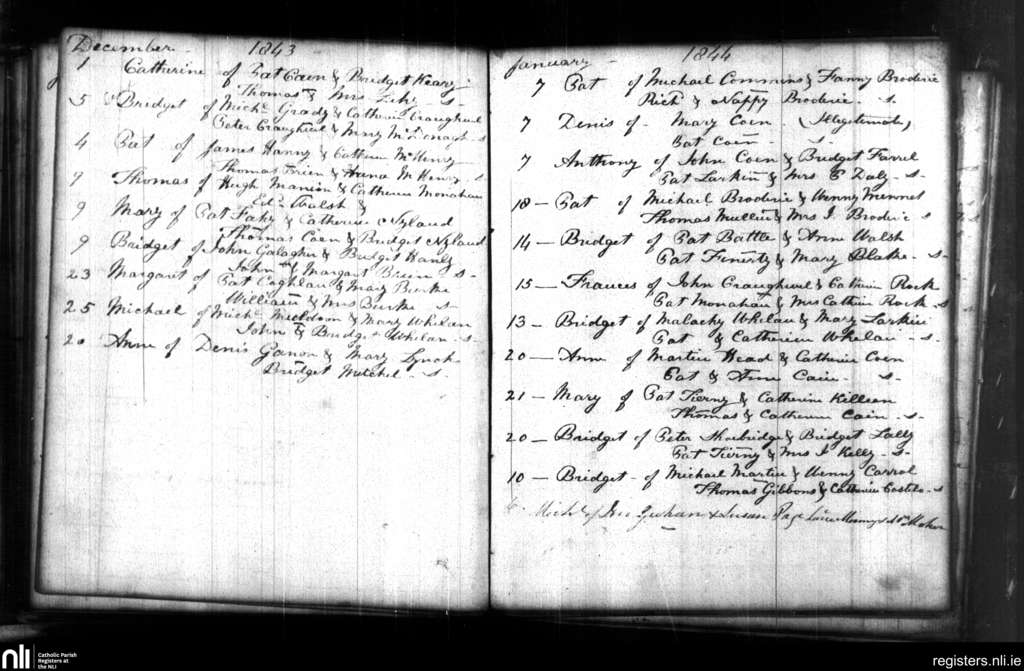 December 1843
1 Catherine of Pat Coen & Bridget Keary
Thomas & Mrs s-
5 Bridget of Michl Grady & Catherine Craughwell
Peter Craughwel & Mary McDonagh s
4 Pat of James Hanny & Catherin McHenry
Thomas & McHenry s
9 Thomas of Hugh Manion & Catherin Monahan
Edd Walsh &
9 Mary of Pat Fahy & Catherine Nyland
Thomas Coen & Bridget Nyland
9 Bridget of John Galagher & Bridget Hanly
John & Margart Breen s-
23 Margaret of Pat Coghlan & Mary Burke
William & Mrs Burke s-
25 Michael of Michl Muldoon & Mary Whelan
John & Bridget Whelan - s-
20 Anne of Denis Ganon & Mary Lynch
Bridget Mitchel - s-
January 1844
7 Pat of Michael Commins & Fanny Broderic
Richd & Nappy Broderic - s.
7 Denis of - Mary Coen (Illegitimate)
Pat Coen - s-
7 Anthony of John Coen & Bridget Farrel
Pat Larkin & Mrs Daly - s-
18 - Pat of Michael Broderic & Wenny
Thomas Mullin & Mrs J Broderic s
14 - Bridget of Pat Battle & Anne Walsh
Pat Finerty & Mary Blake - s-
15 - Frances of John Craughwel & Cathrin Rock
Pat Monahan & Mrs Cathrin Rock - s
13 - Bridget of Malachy Whelan & Mary Larkin
Pat & Catherin Whelan - s-
20 - Anne of Martin Head & Catherin Coen
Pat & Anne Cain - s-
21 - Mary of Pat Tierny & Catherine Killeen
Thomas & Catherine Cain - s-
20 - Bridget of Peter & Bridget Lally
Pat Tierny & Mrs J Kelly - s-
10 - Bridget - of Michael Martin & Wenny Carrol
Thomas Gibbons & Catherin Costelo - s
Michl of & Susan
nli
Catholic Parish
Registers at
the NLI
registers.nli.ie